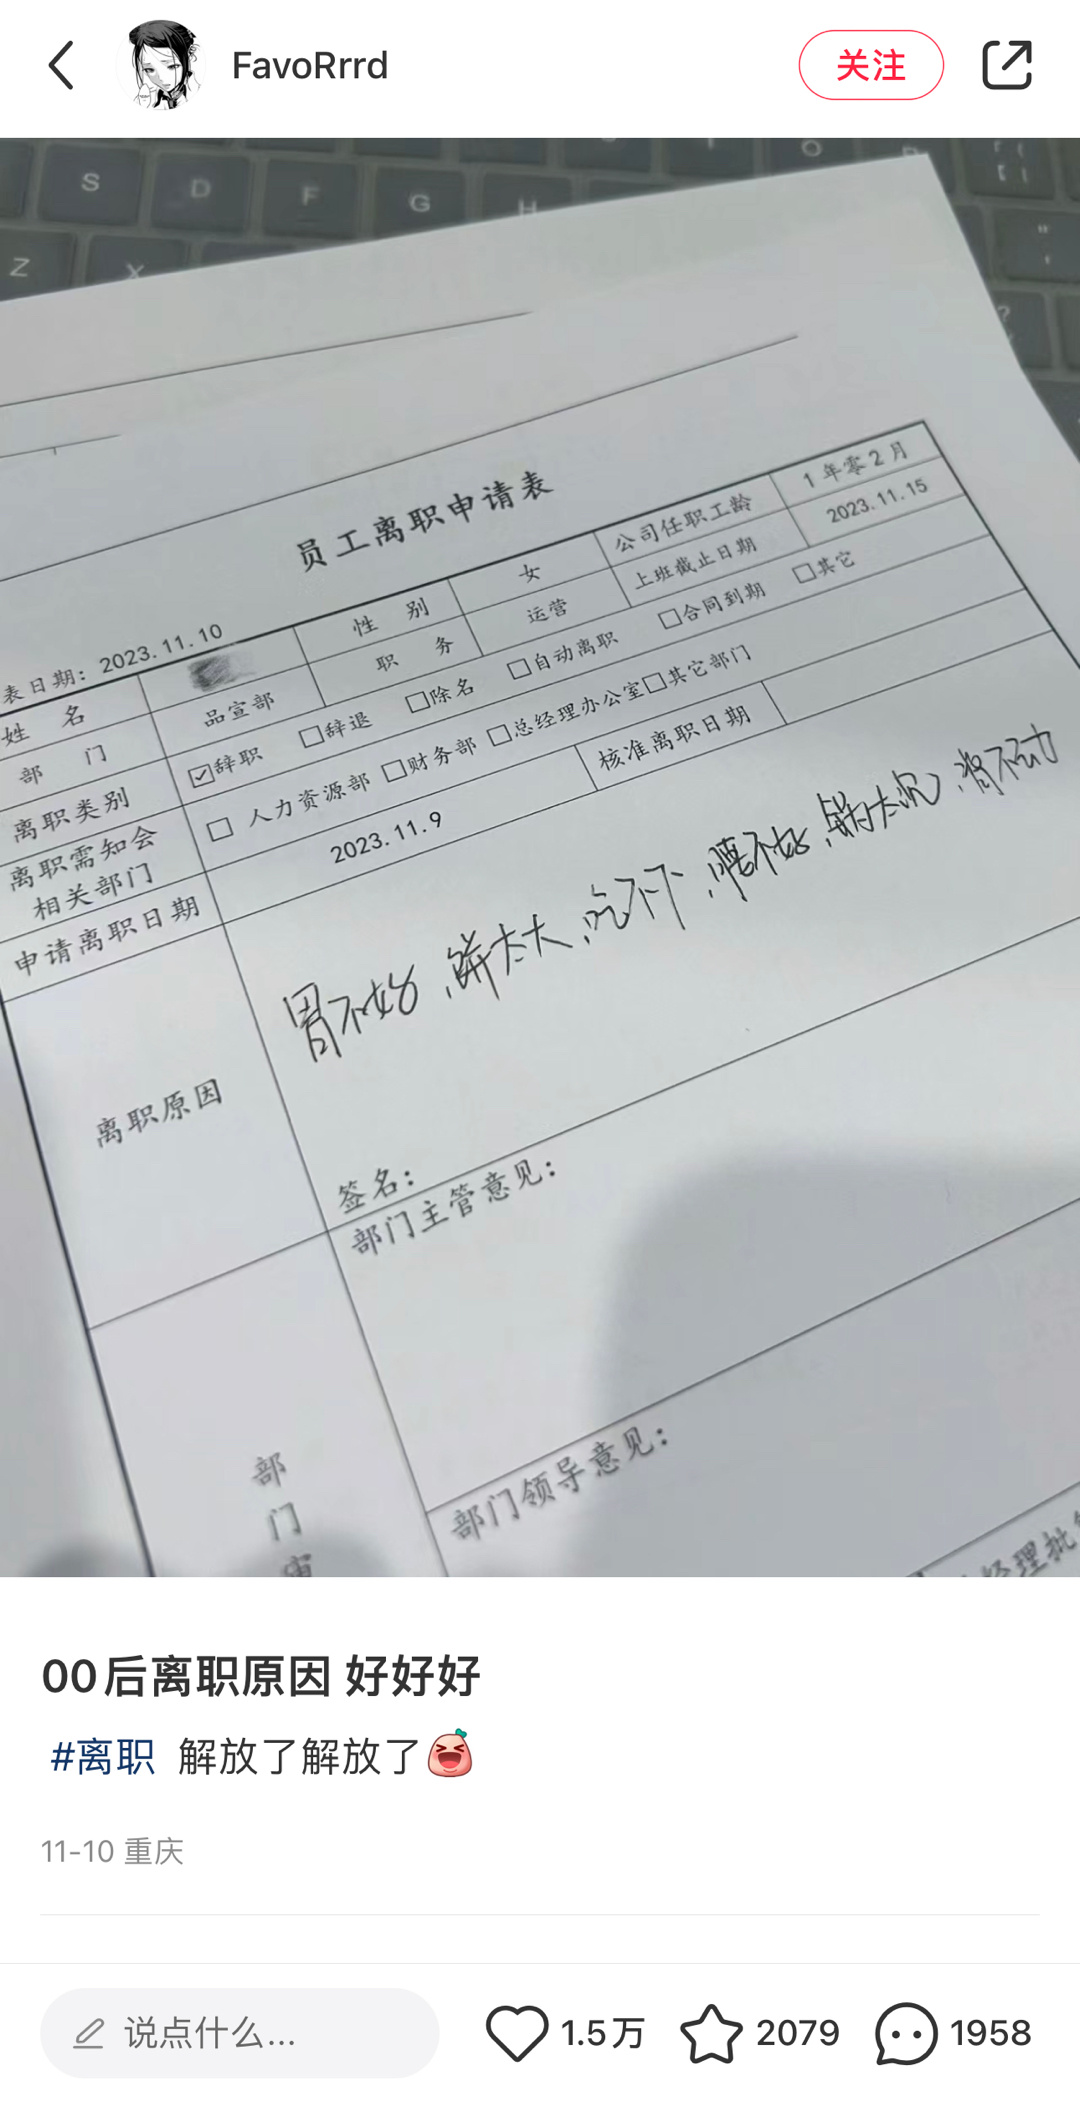 FavoRrrd
关注
S D F G H
Z X
员工离职申请表
表日期：2023.11.10
姓 名 性 别 女 公司任职工龄 1年零2月
部 门 品宣部 职 务 运营 上班截止日期 2023.11.15
离职类别 ☑辞职 □辞退 □除名 □自动离职 □合同到期 □其它
离职需知会
相关部门 □ 人力资源部 □财务部 □总经理办公室□其它部门
申请离职日期 2023.11.9 核准离职日期
离职原因
胃不好,饼太大,吃不下,腰不好,锅太沉,背不动
签名：
部门主管意见：
部门
部门领导意见：
经理批
00后离职原因 好好好
#离职 解放了解放了
11-10 重庆
说点什么...
1.5万
2079
1958